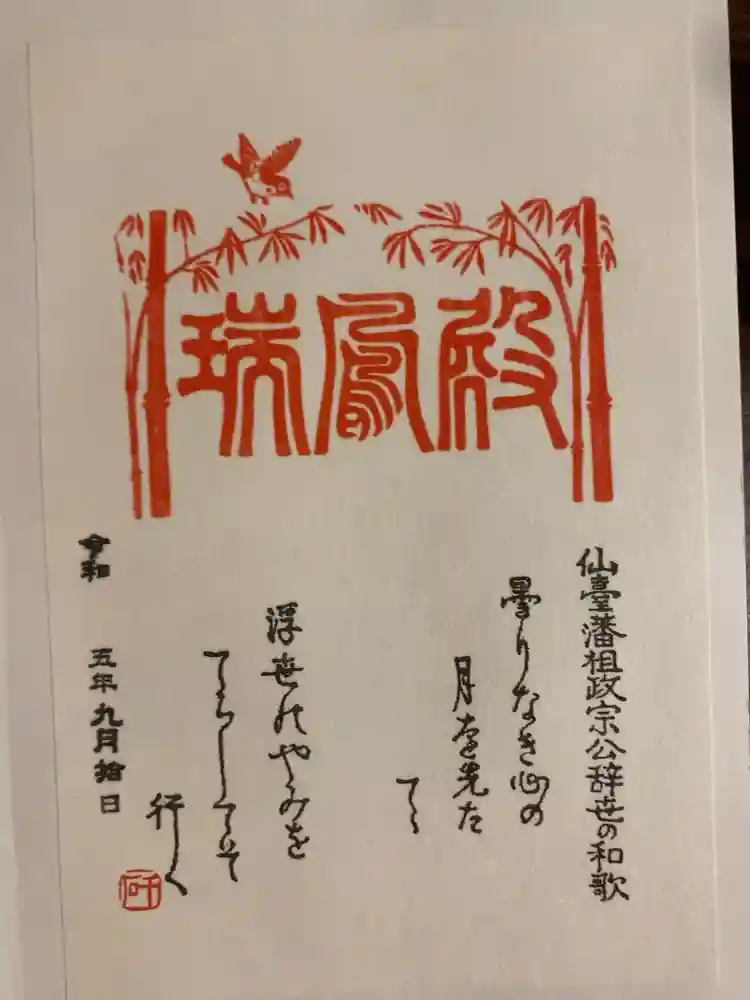 瑞鳳殿
仙臺藩祖政宗公辞世の和歌
曇りなき心の
月を先た
てゝ
浮世のやみを
てらしてそ
行く
令和 五年九月拾日